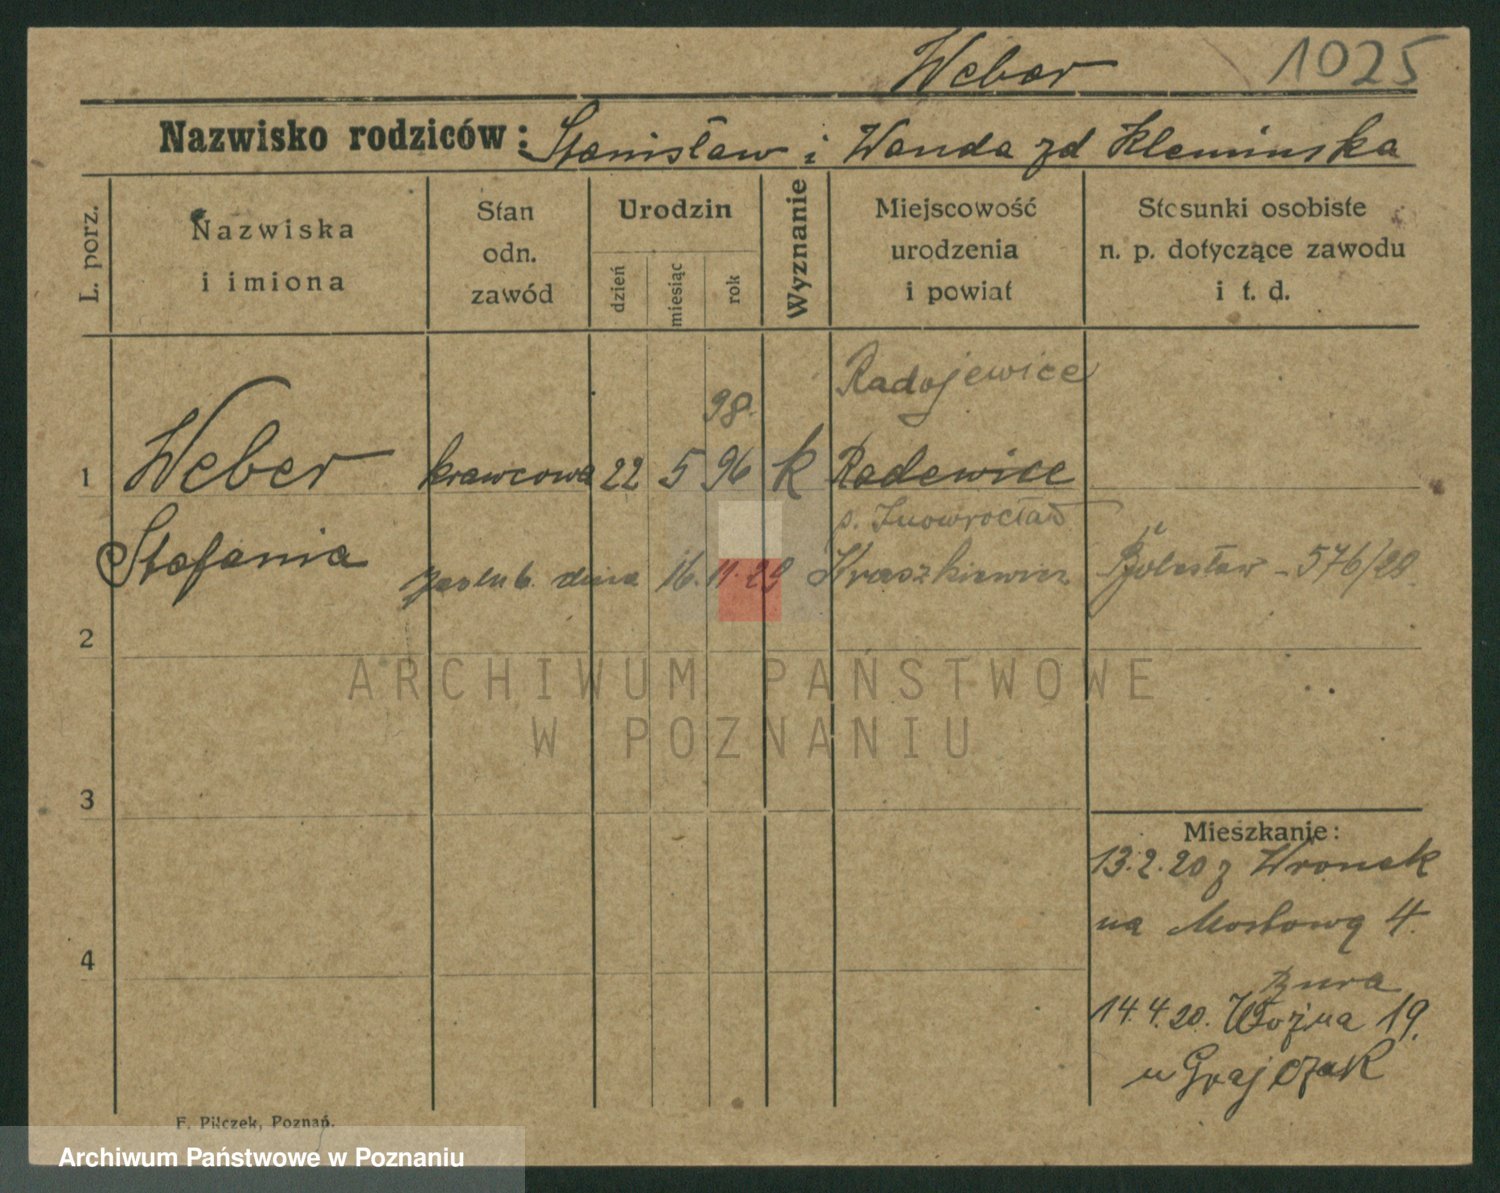 Weber 1025
Nazwisko rodziców: Stanisław i Wanda zd Kleminska
L. porz.
Nazwiska i imiona
Stan odn. zawód
Urodzin
dzień miesiąc rok
Wyznanie
Miejscowość urodzenia i powiat
Stosunki osobiste n. p. dotyczące zawodu i t. d.
Radojewice
98.
1 Weber krawcowa 22 5 96 k Radewice
p. Inowrocław
Stefania zaślub. dnia 16.11.29 Kraszkiewicz Bolesław - 576/29.
2
ARCHIWUM PAŃSTWOWE
W POZNANIU
3
Mieszkanie:
13.2.20 z Wronek
na Mostową 4.
4
14.4.20. Woźna 19.
u Grajczak
F. Pilczek, Poznań.
Archiwum Państwowe w Poznaniu